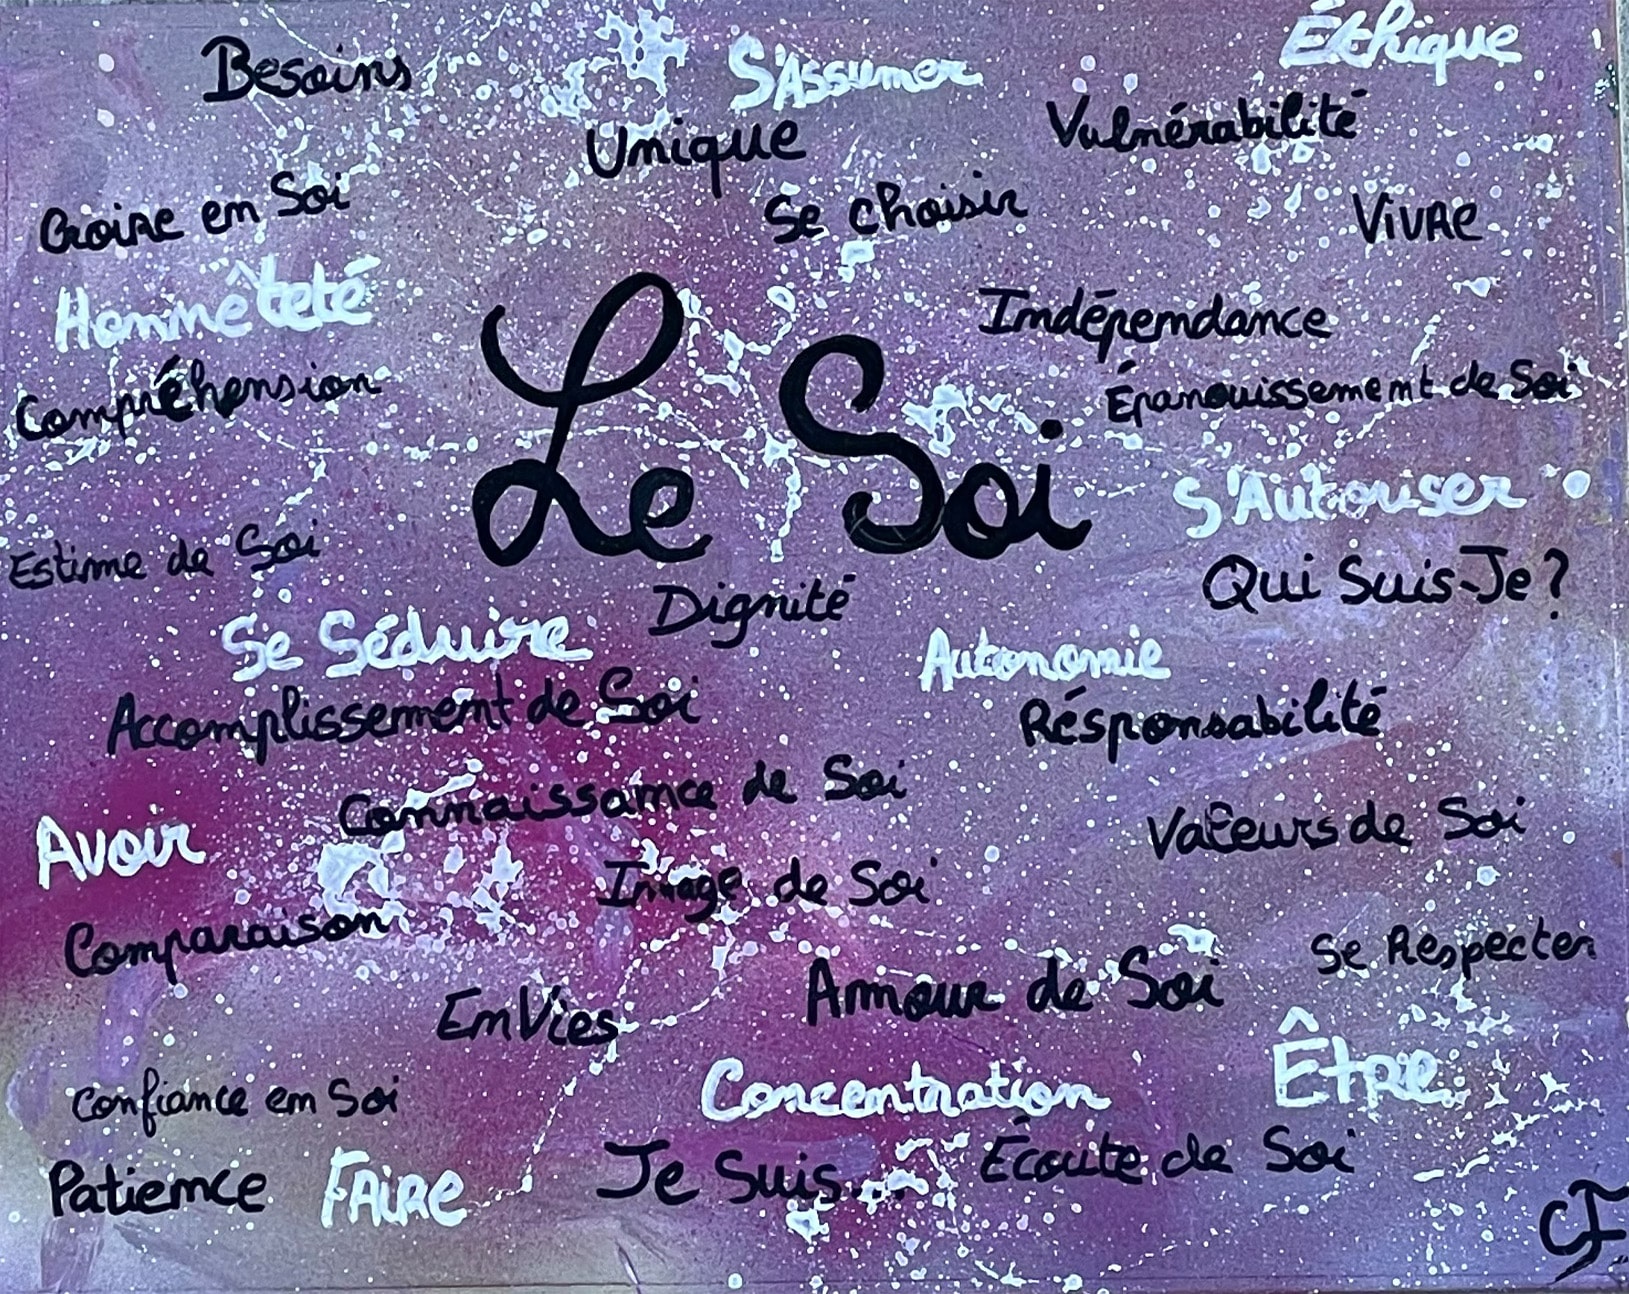 Besoins
S'Assumer
Éthique
Unique
Vulnérabilité
Croire en Soi
Se choisir
Vivre
Honnêteté
Indépendance
Compréhension
Épanouissement de Soi
Le Soi
S'Autoriser
Estime de Soi
Qui Suis-Je ?
Dignité
Se Séduire
Autonomie
Accomplissement de Soi
Résponsabilité
Connaissance de Soi
Avoir
Valeurs de Soi
Image de Soi
Comparaison
Se Respecter
Amour de Soi
EnVies
Être
Confiance en Soi
Concentration
Patience
FAire
Je Suis...
Écoute de Soi